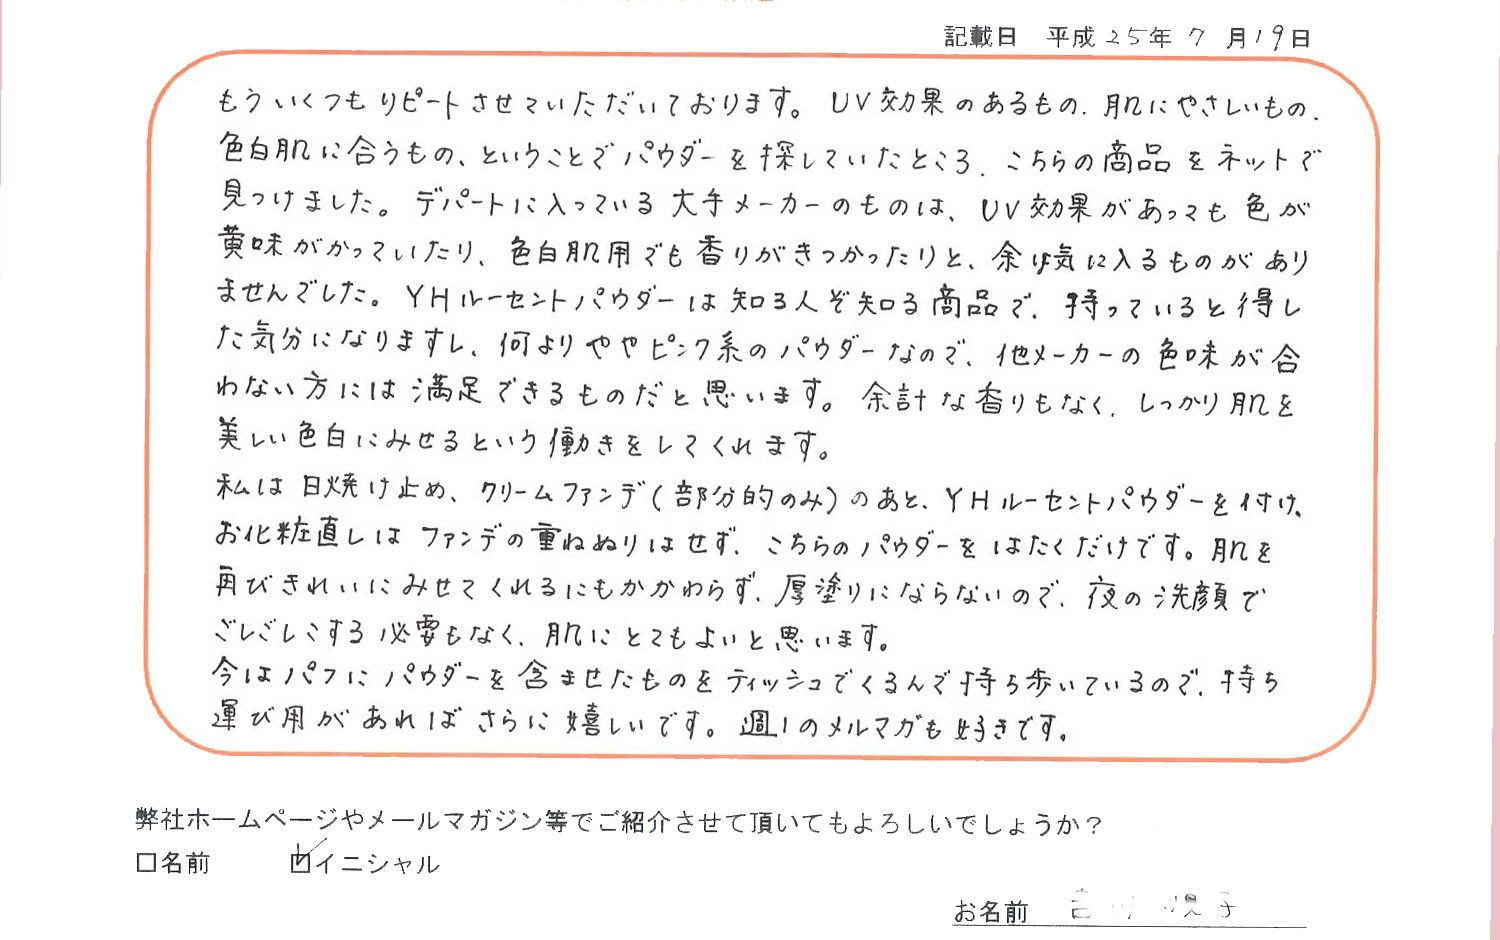 記載日 平成25年7月19日
もういくつもリピートさせていただいております。UV効果のあるもの、肌にやさしいもの、
色白肌に合うもの、ということでパウダーを探していたところ、こちらの商品をネットで
見つけました。デパートに入っている大手メーカーのものは、UV効果があっても色が
黄味がかっていたり、色白肌用でも香りがきつかったりと、余は気に入るものがあり
ませんでした。YHルーセントパウダーは知る人ぞ知る商品で、持っていると得し
た気分になりますし、何よりややピンク系のパウダーなので、他メーカーの色味が合
わない方には満足できるものだと思います。余計な香りもなく、しっかり肌を
美しい色白にみせるという働きをしてくれます。
私は日焼け止め、クリームファンデ(部分的のみ)のあと、YHルーセントパウダーを付け、
お化粧直しはファンデの重ねぬりはせず、こちらのパウダーをはたくだけです。肌を
再びきれいにみせてくれるにもかかわらず、厚塗りにならないので、夜の洗顔で
ごしごしこする必要もなく、肌にとてもよいと思います。
今はパフにパウダーを含ませたものをティッシュでくるんで持ち歩いているので、持ち
運び用があればさらに嬉しいです。週1のメルマガも好きです。
弊社ホームページやメールマガジン等でご紹介させて頂いてもよろしいでしょうか?
□名前 ☑イニシャル
お名前